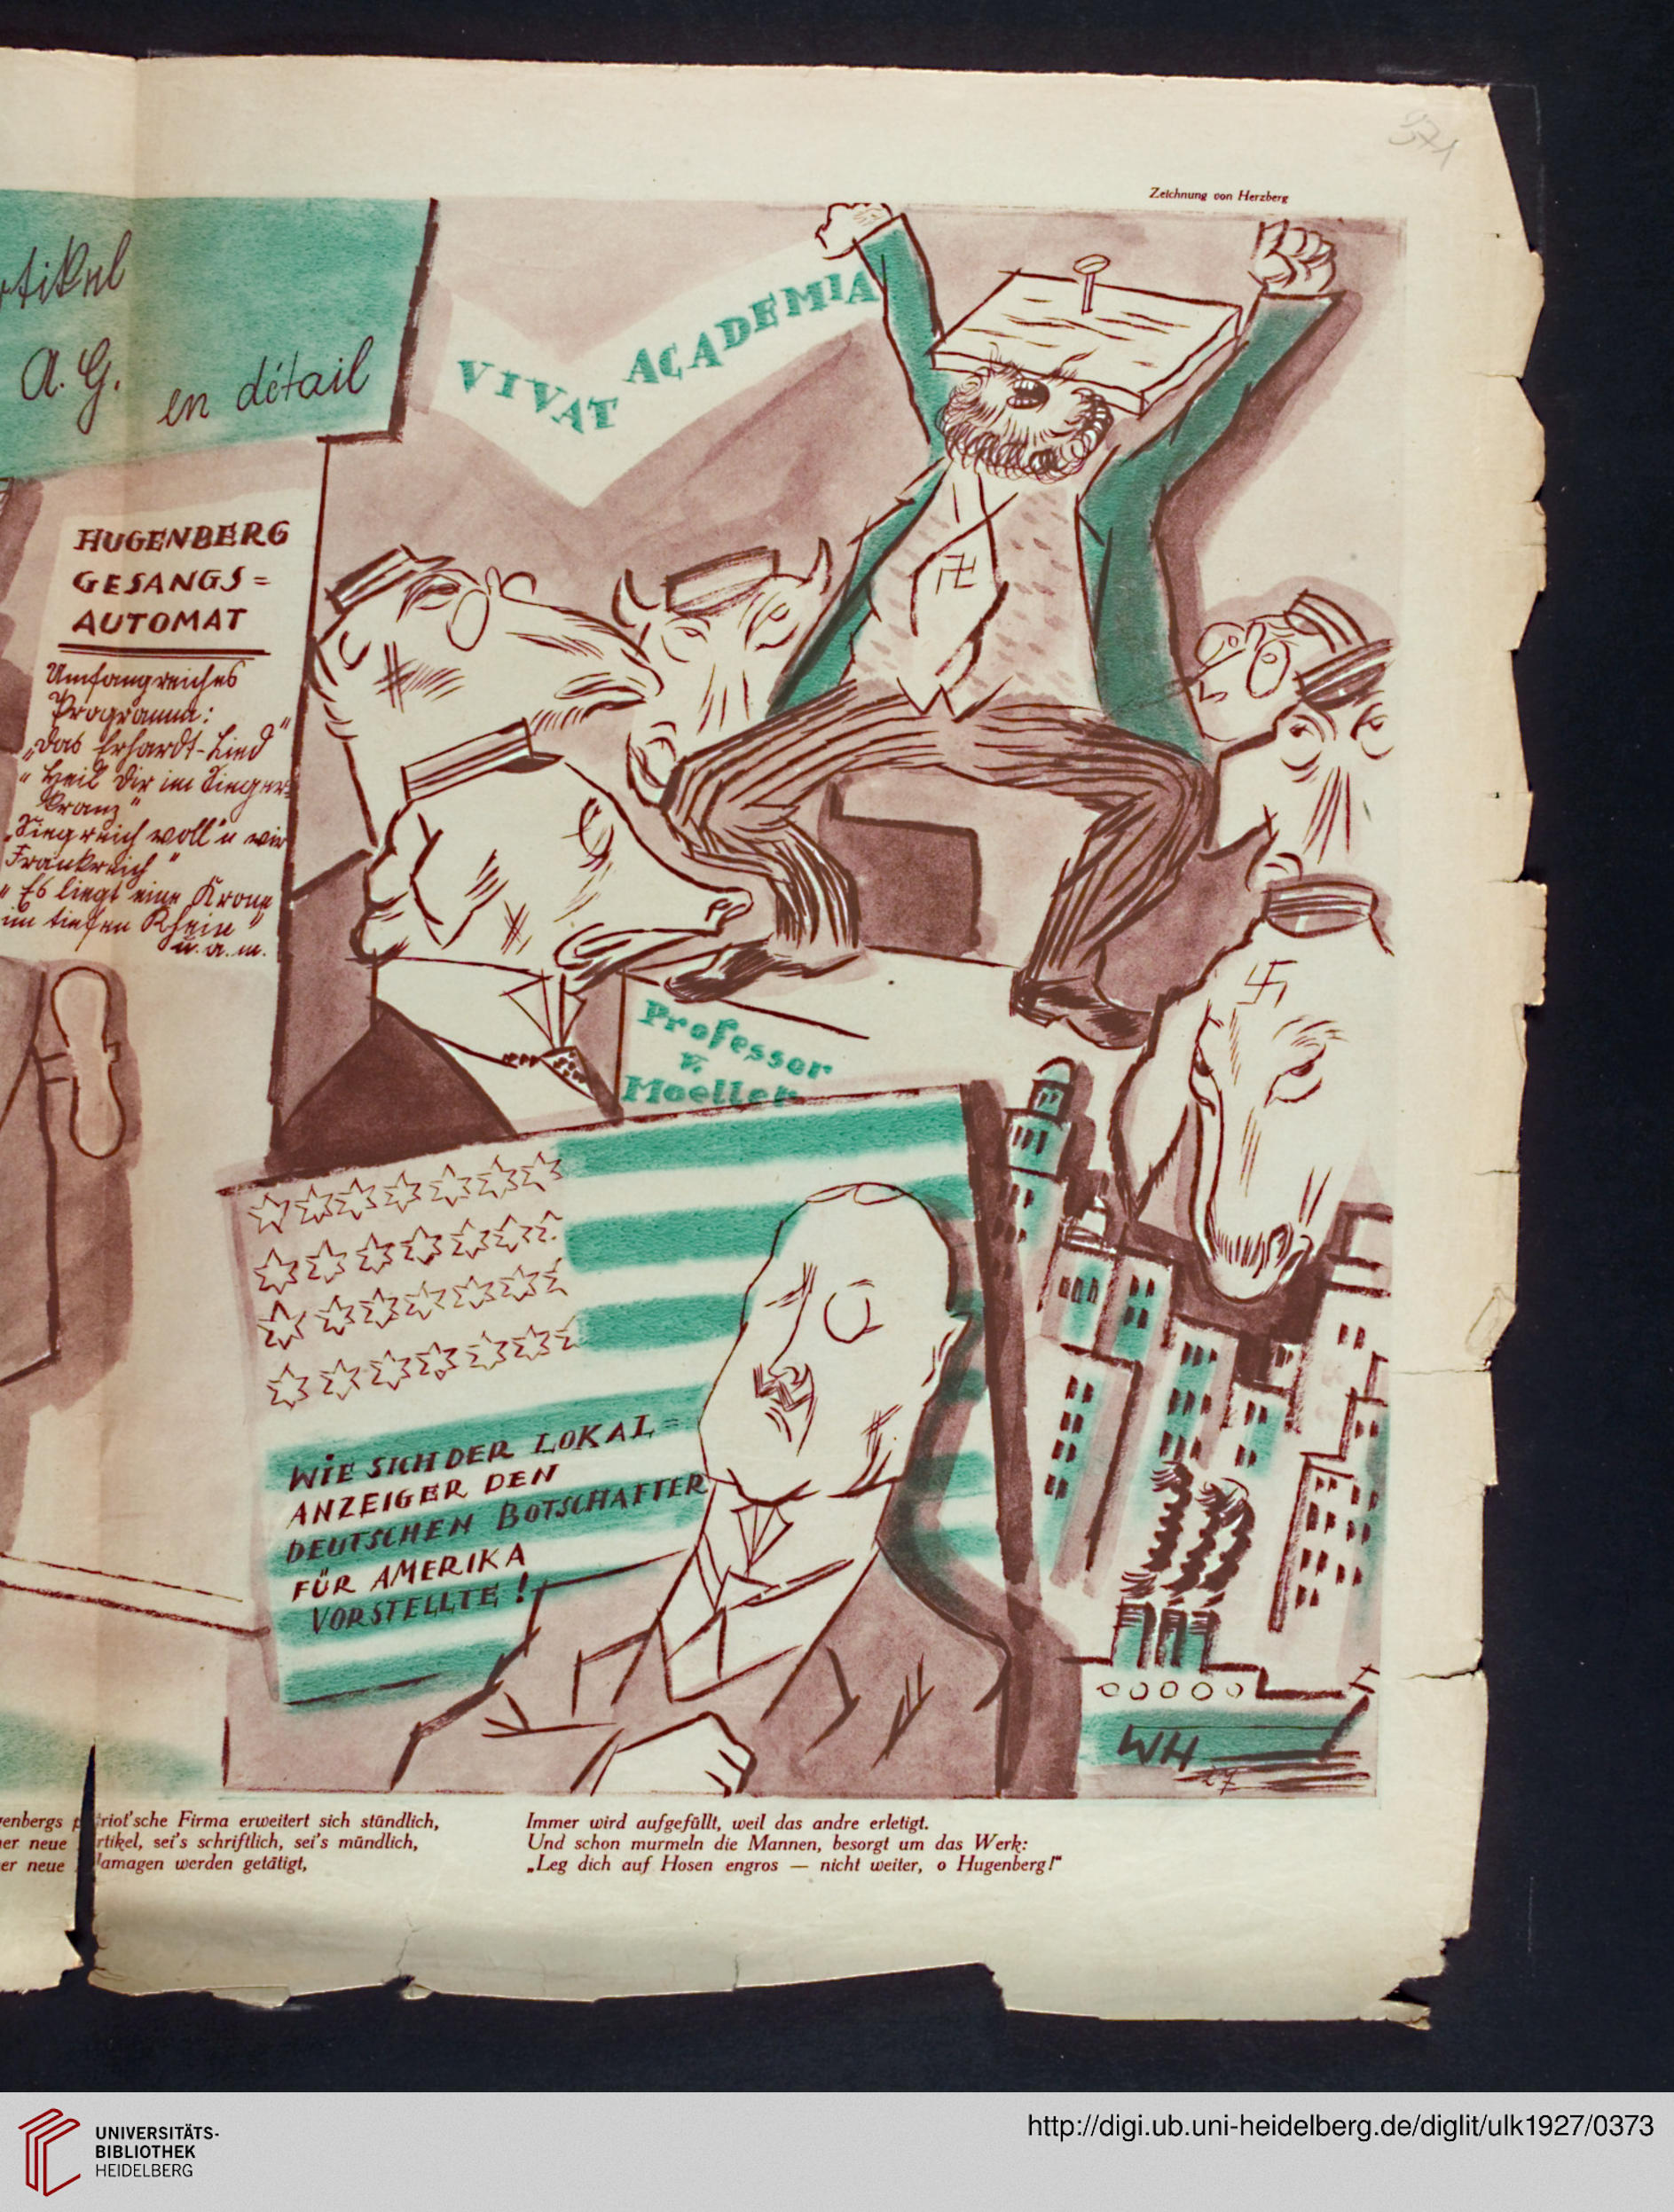 Zeichnung von Herzberg
tikel
A. G.
en détail
VIVAT ACADEMIA
HUGENBERG
GESANGS=
AUTOMAT
Umfangreiches
Programm:
„Das Erhardt-Lied"
„Heil Dir im Sieger-
kranz"
„Siegreich woll'n wir
Frankreich"
„Es liegt eine Krone
im tiefen Rhein"
u. a. m.
Professor
v.
Moeller
WIE SICH DER LOKAL=
ANZEIGER DEN
DEUTSCHEN BOTSCHAFTER
FÜR AMERIKA
VORSTELLTE!
WH
27
enbergs riot'sche Firma erweitert sich stündlich,
er neue rtikel, sei's schriftlich, sei's mündlich,
er neue lamagen werden getätigt,
Immer wird aufgefüllt, weil das andre erletigt.
Und schon murmeln die Mannen, besorgt um das Werk:
„Leg dich auf Hosen engros — nicht weiter, o Hugenberg!"
UNIVERSITÄTS-
BIBLIOTHEK
HEIDELBERG
http://digi.ub.uni-heidelberg.de/diglit/ulk1927/0373